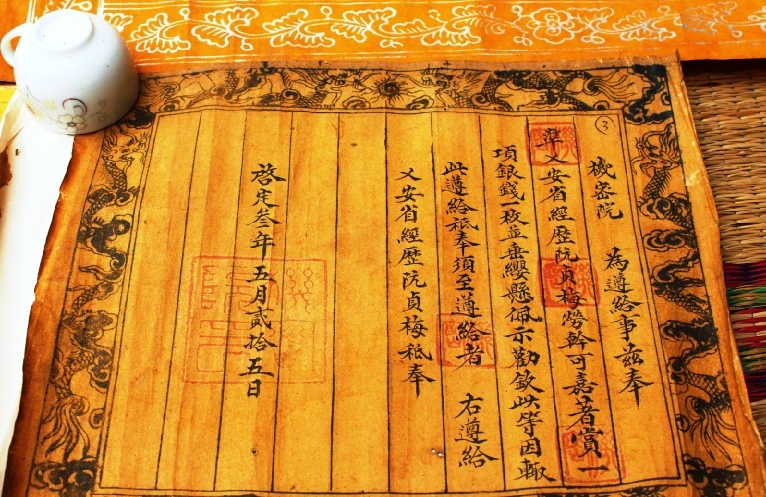 ③
機密院 為遵給事玆奉
準乂安省經歷阮貞梅勞幹可嘉著賞一
項銀錢一枚並垂纓懸佩示勸欽此等因輙
此遵給祗奉須至遵給者 右遵給
乂安省經歷阮貞梅祗奉
啓定叁年五月貳拾五日